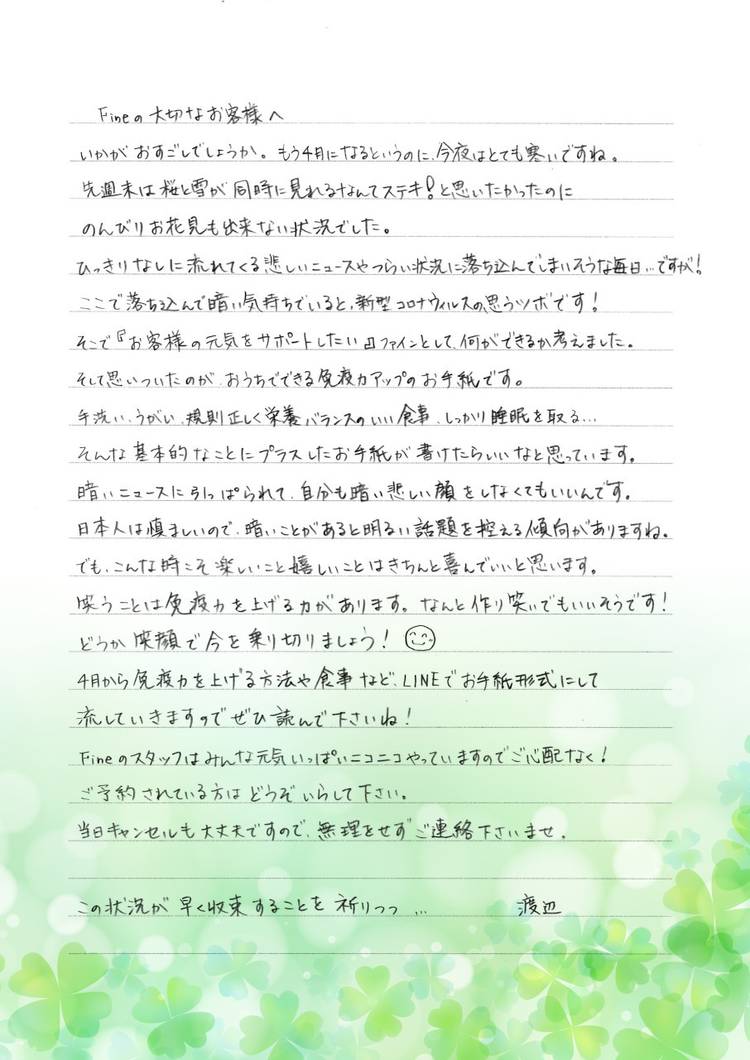 Fineの大切なお客様へ
いかがおすごしでしょうか。もう4月になるというのに、今夜はとても寒いですね。
先週末は桜と雪が同時に見れるなんてステキ!と思いたかったのに
のんびりお花見も出来ない状況でした。
ひっきりなしに流れてくる悲しいニュースやつらい状況に落ち込んでしまいそうな毎日…ですが!
ここで落ち込んで暗い気持ちでいると、新型コロナウィルスの思うツボです!
そこで『お客様の元気をサポートしたい』ファインとして、何ができるか考えました。
そして思いついたのが、おうちでできる免疫力アップのお手紙です。
手洗い、うがい、規則正しく栄養バランスのいい食事、しっかり睡眠を取る…
そんな基本的なことにプラスしたお手紙が書けたらいいなと思っています。
暗いニュースに引っぱられて、自分も暗い悲しい顔をしなくてもいいんです。
日本人は慎ましいので、暗いことがあると明るい話題を控える傾向がありますね。
でも、こんな時こそ楽しいこと嬉しいことはきちんと喜んでいいと思います。
笑うことは免疫力を上げる力があります。なんと作り笑いでもいいそうです!
どうか笑顔で今を乗り切りましょう!
4月から免疫力を上げる方法や食事など、LINEでお手紙形式にして
流していきますのでぜひ読んで下さいね!
Fineのスタッフはみんな元気いっぱいニコニコやっていますのでご心配なく!
ご予約されている方はどうぞいらして下さい。
当日キャンセルも大丈夫ですので、無理をせずご連絡下さいませ.
この状況が早く収束することを祈りつつ… 渡辺